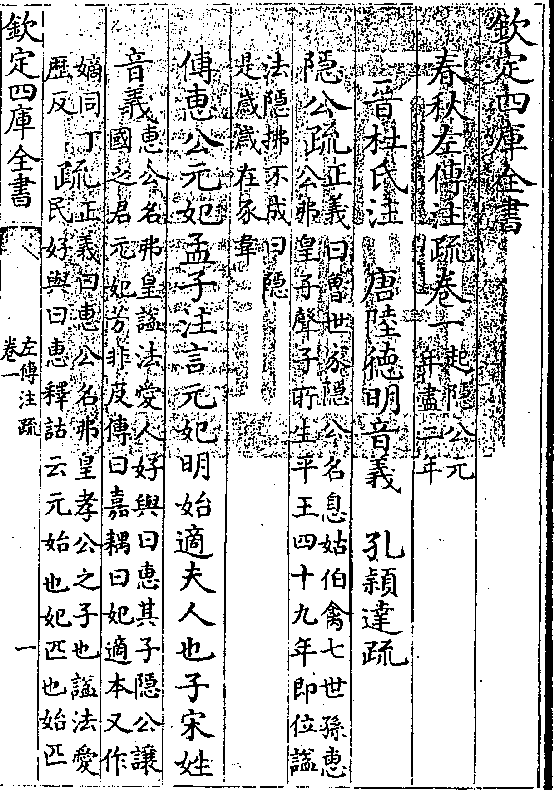 欽定四庫全書
春秋左傳注疏卷一起隱公元年盡二年
晉杜氏注 唐陸徳明音義 孔穎達疏
隠公疏正義曰魯世家隠公名息姑伯禽七世孫惠
公弗皇子聲子所生平王四十九年即位諡
法隠拂不成曰隠
是歳歳在豕韋
傳惠公元妃孟子注言元妃明始適夫人也子宋姓
音義惠公名弗皇諡法愛人好與曰惠其子隠公讓
國之君元妃芳非反傳曰嘉耦曰妃適本又作
嫡同丁
歴反
疏正義曰惠公名弗皇孝公之子也諡法愛
民好與曰惠釋詁云元始也妃匹也始匹
欽定四庫全書
左傳注疏
卷一
一